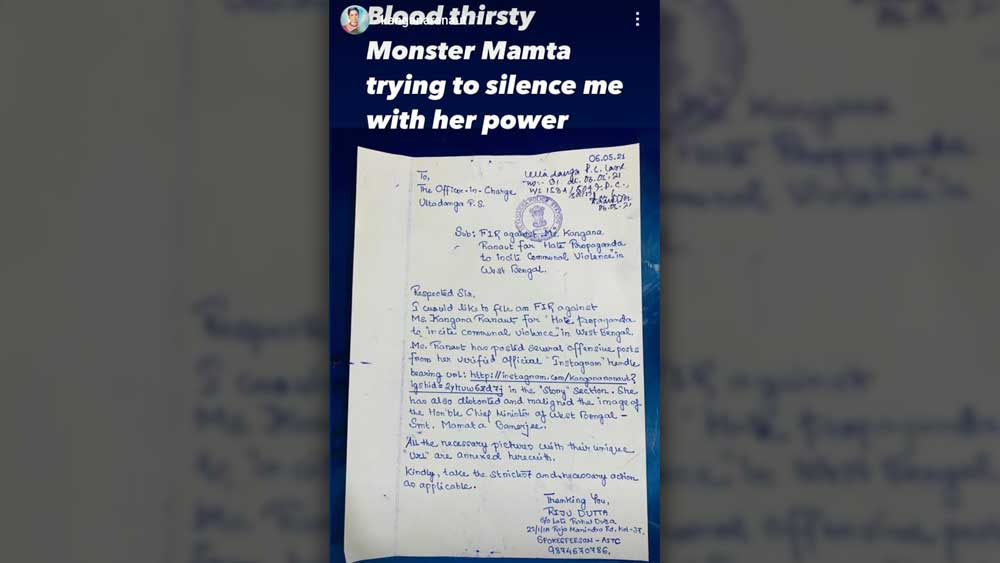 Blood thirsty
Monster Mamta
trying to silence me
with her power
06.05.21
To,
The Officer-in-Charge
Ultadanga P.S.
06.05.21
Sub: FIR against Ms. Kangana
Ranaut for "Hate Propaganda
to incite Communal Violence" in
West Bengal.
Respected Sir,
I would like to file an FIR against
Ms. Kangana Ranaut for "Hate propaganda
to "incite communal violence" in West Bengal.
Ms. Ranaut has posted several offensive posts
from her verified official "Instagram" handle
bearing url: http://instagram.com/
in the "Story" section. She
has also distorted and maligned the image of
the Hon'ble Chief Minister of West Bengal -
Smt. Mamata Banerjee.
All the necessary pictures with their unique
"Url" are annexed herewith.
Kindly, take the strictest and necessary action
as applicable.
Thanking You,
RIJU DUTTA
S/o Late
Raja Manindra Rd, Kol-37.
SPOKESPERSON - AITC
9874670786.